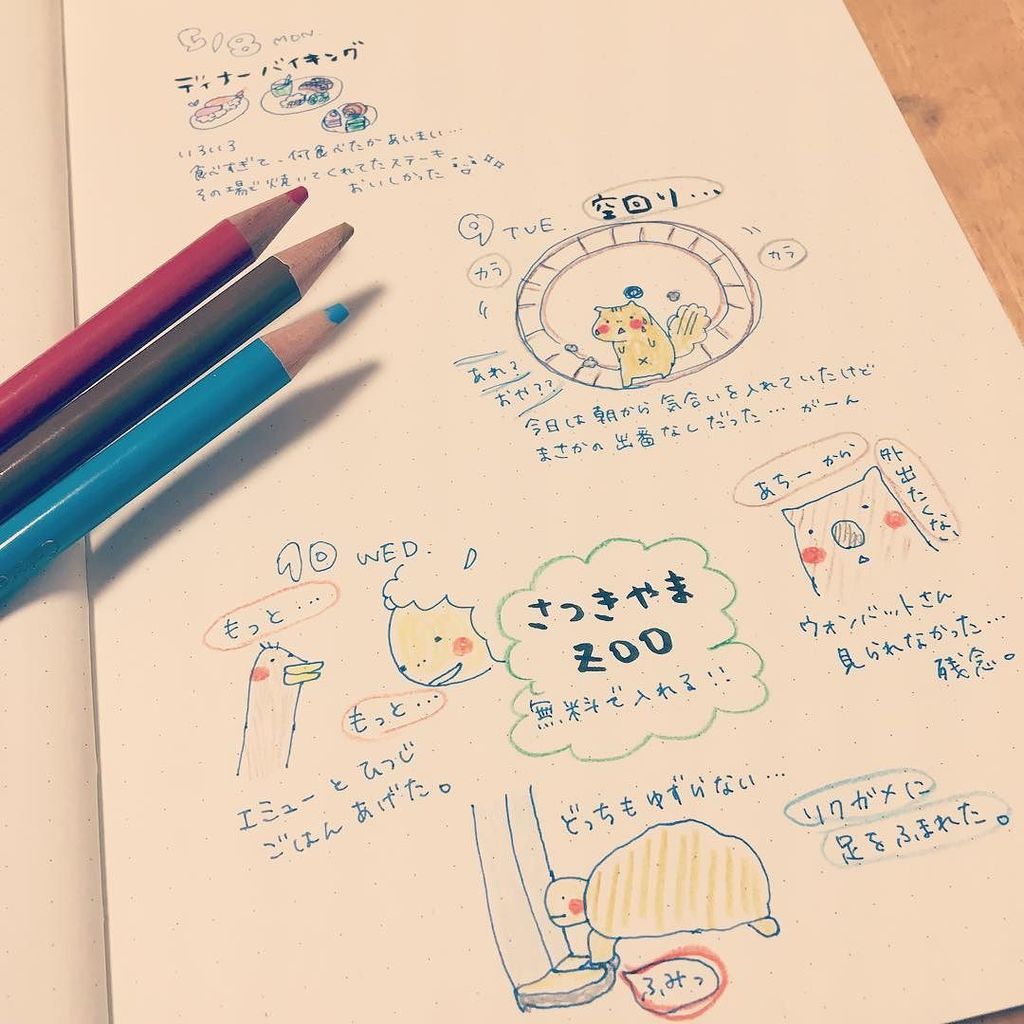 5/8 MON.
ディナーバイキング
いろいろ
食べすぎて、何食べたかあいまい…
その場で焼いてくれてたステーキ
おいしかった
9 TUE.
空回り…
カラ
カラ
あれ?
おや??
今日は朝から気合いを入れていたけど
まさかの出番なしだった…がーん
10 WED.
もっと…
もっと…
エミューとひつじ
ごはんあげた。
さつきやま
ZOO
無料で入れる!!
あちーから
外出たくない
ウォンバットさん
見られなかった…
残念。
どっちもゆずらない…
リクガメに
足をふまれた。
ふみっ